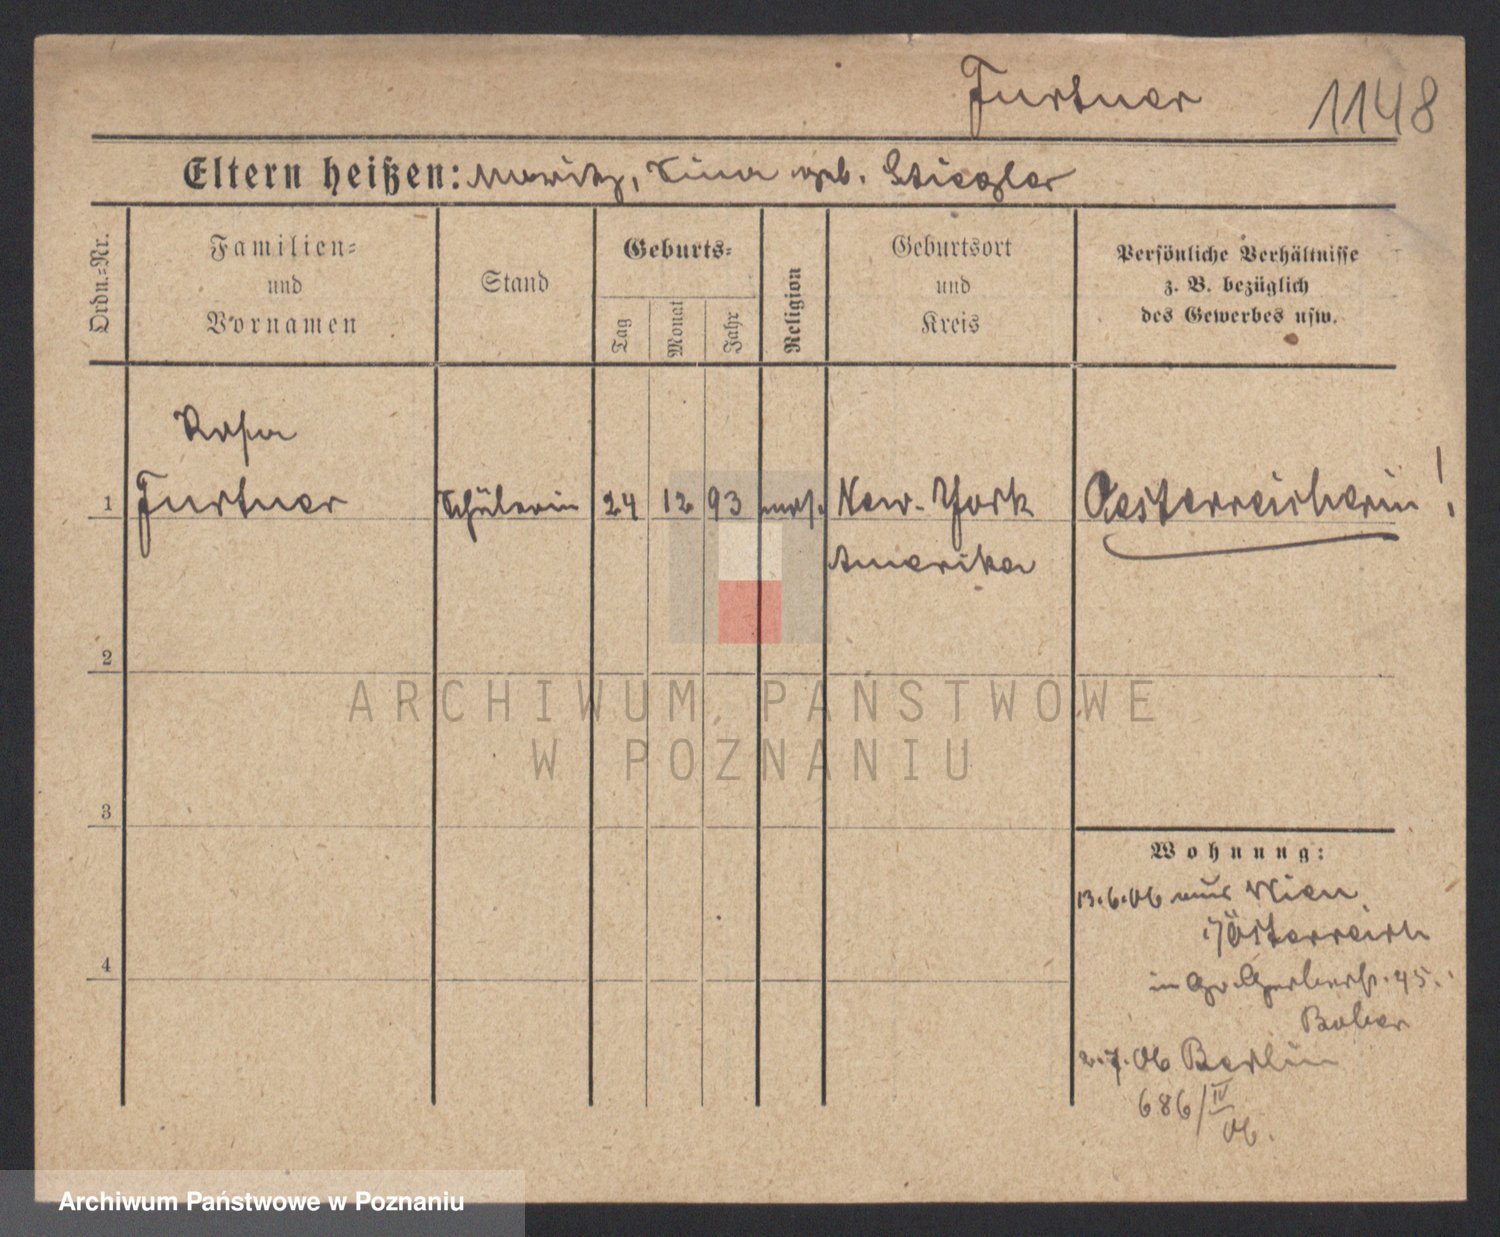 Furtner 1148
Eltern heißen: Moritz, Lina geb. Stiegler
Ordn.-Nr.
Familien-
und
Vornamen
Stand
Geburts-
Tag
Monat
Jahr
Religion
Geburtsort
und
Kreis
Persönliche Verhältnisse
z. B. bezüglich
des Gewerbes usw.
Rosa
1 Furtner Schülerin 24 12 93 mos. New-York Oesterreicherin!
Amerika
2
ARCHIWUM PAŃSTWOWE
W POZNANIU
3
Wohnung:
13.6.06 aus Wien
i/Österreich
4
in Gr. Gerberstr. 45.
Baber
2.7.06 Berlin
686/IV
06.
Archiwum Państwowe w Poznaniu